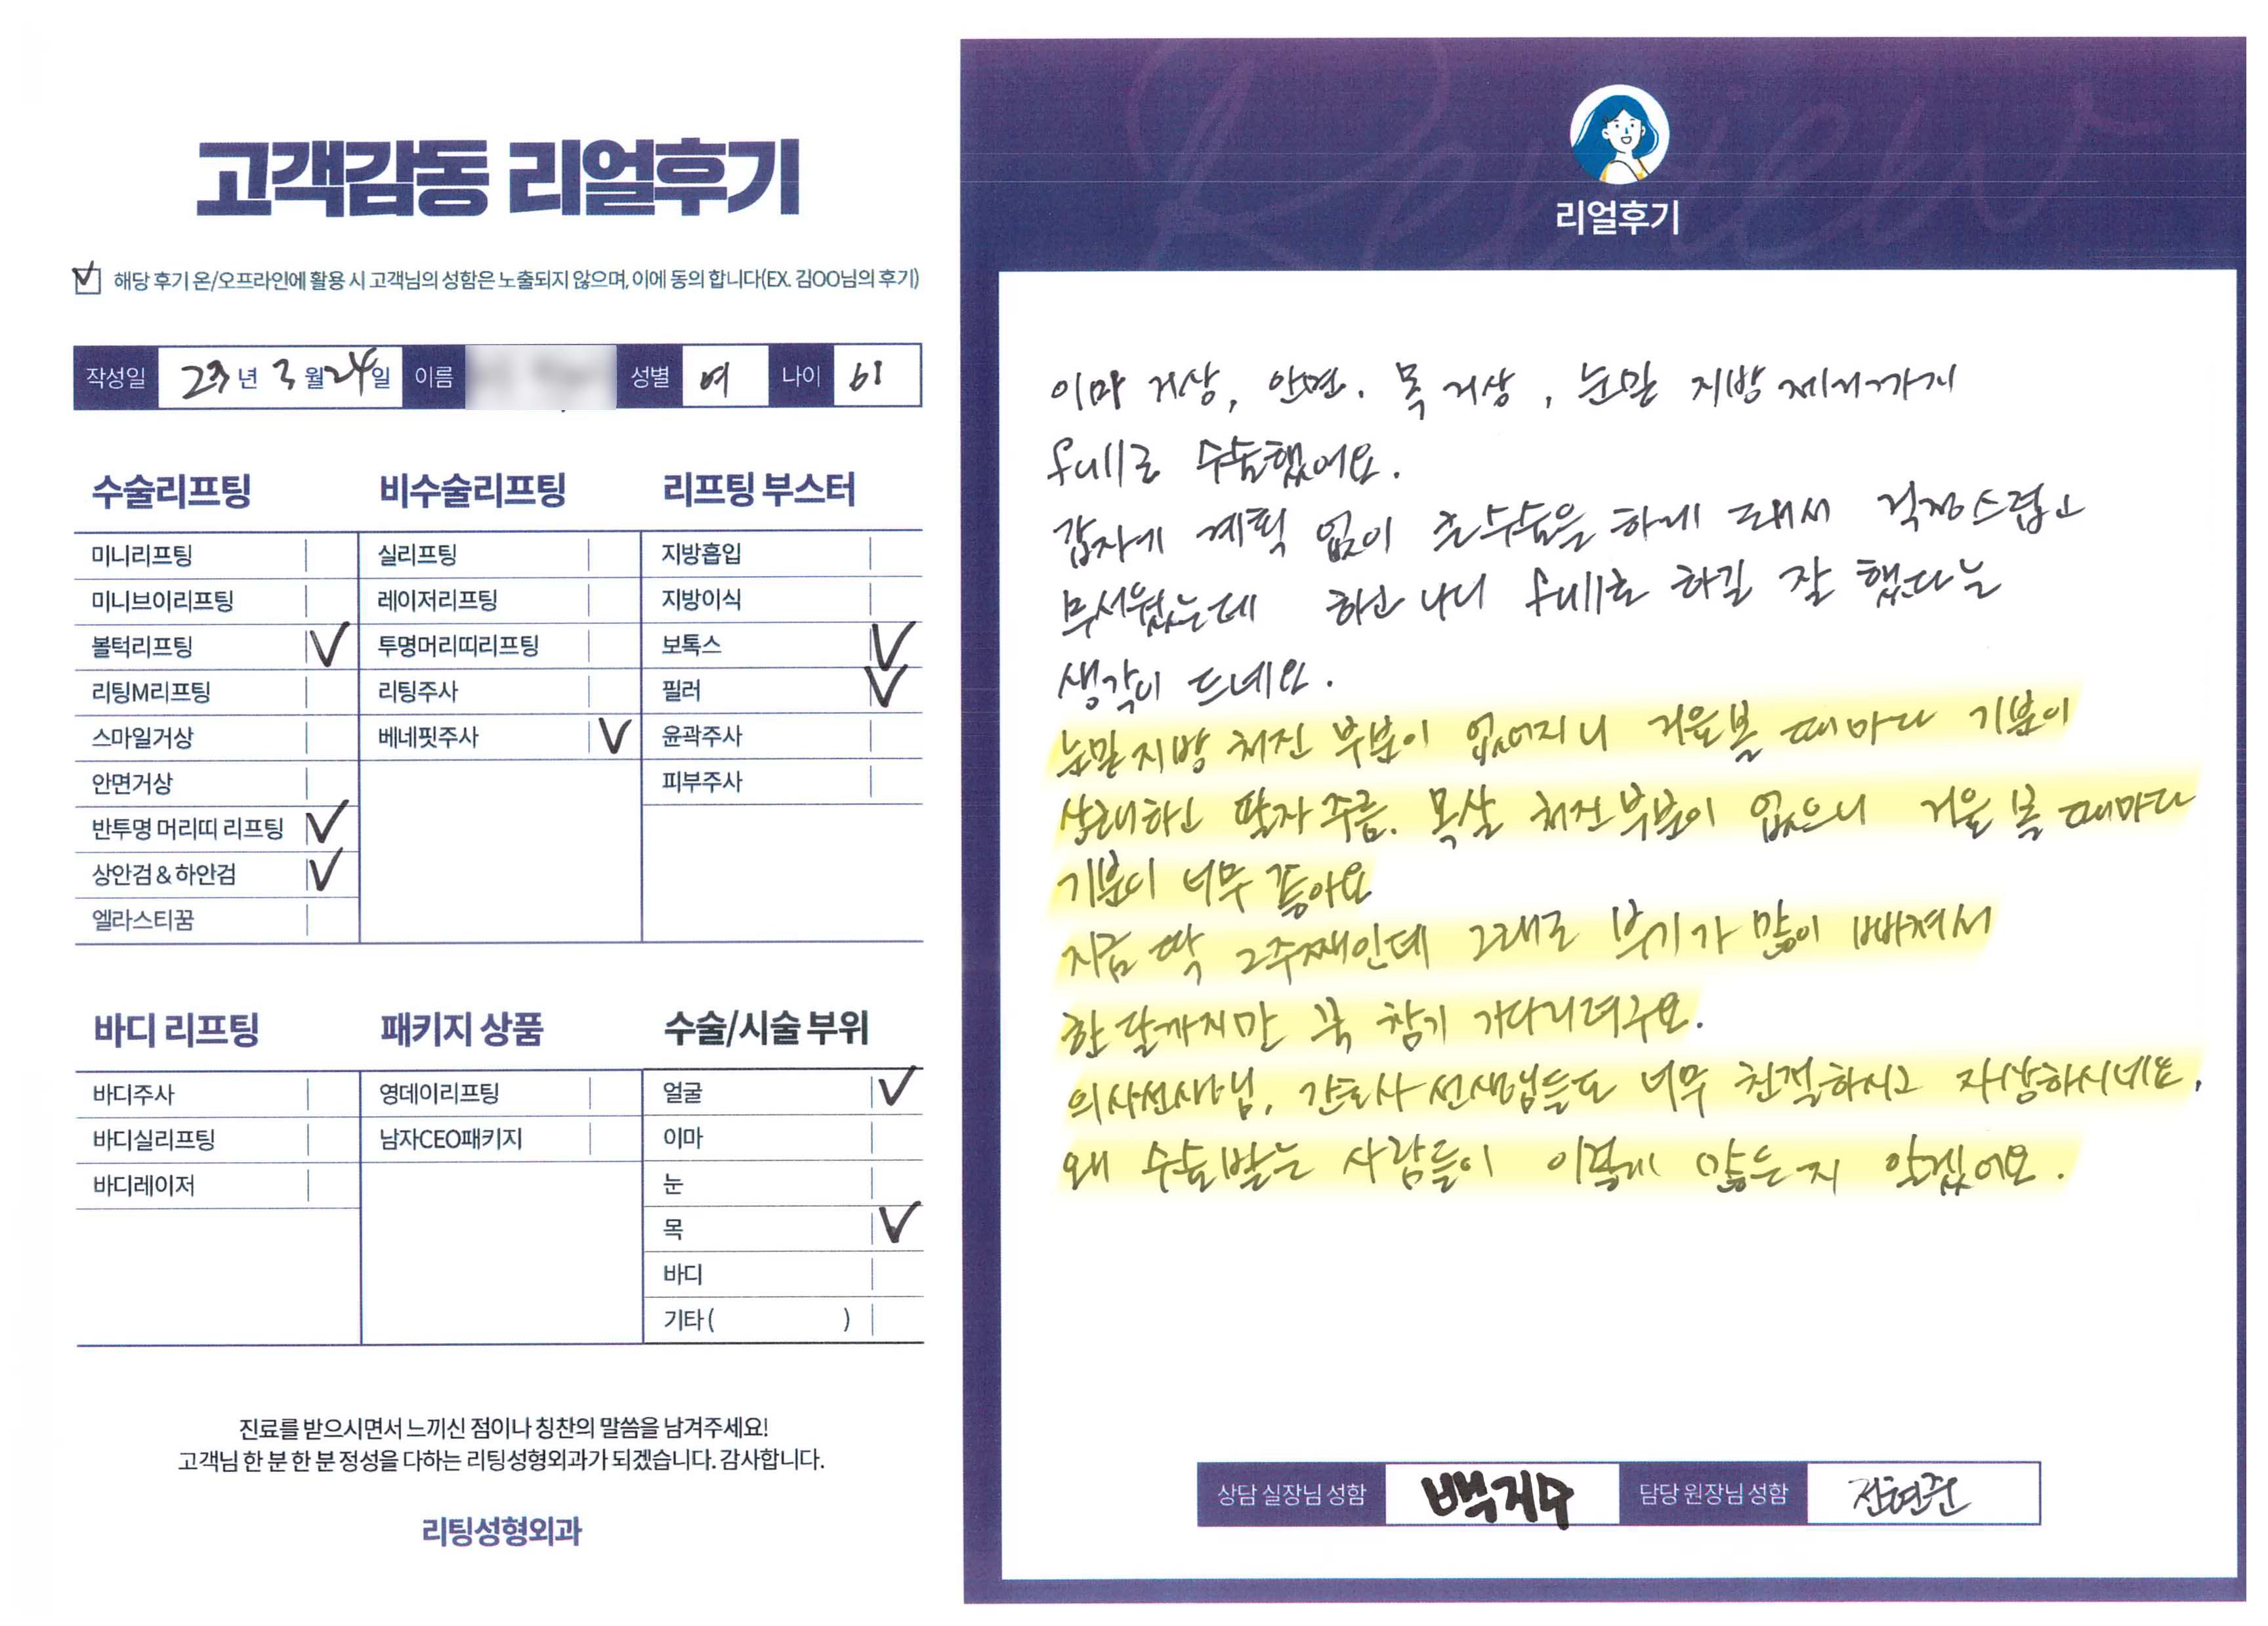 고객감동 리얼후기
해당 후기 온/오프라인에 활용 시 고객님의 성함은 노출되지 않으며, 이에 동의 합니다(EX. 김OO님의 후기)
작성일 23년 3월 24일 이름 성별 여 나이 61
수술리프팅
미니리프팅
미니브이리프팅
볼턱리프팅
리팅M리프팅
스마일거상
안면거상
반투명 머리띠 리프팅
상안검 & 하안검
엘라스티꿈
비수술리프팅
실리프팅
레이저리프팅
투명머리띠리프팅
리팅주사
베네핏주사
리프팅 부스터
지방흡입
지방이식
보톡스
필러
윤곽주사
피부주사
바디 리프팅
바디주사
바디실리프팅
바디레이저
패키지 상품
영데이리프팅
남자CEO패키지
수술/시술 부위
얼굴
이마
눈
목
바디
기타 ( )
진료를 받으시면서 느끼신 점이나 칭찬의 말씀을 남겨주세요!
고객님 한 분 한 분 정성을 다하는 리팅성형외과가 되겠습니다. 감사합니다.
리팅성형외과
Review
리얼후기
이마 거상, 안면. 목 거상, 눈밑 지방 제거까지
full로 수술했어요.
갑자기 계획 없이 큰수술을 하게 돼서 걱정스럽고
무서웠는데 하고 나니 full로 하길 잘 했다는
생각이 드네요.
눈밑지방 쳐진 부분이 없어지니 거울볼 때마다 기분이
상쾌하고 팔자 주름. 목살 쳐진부분이 없으니 거울 볼 때마다
기분이 너무 좋아요
지금 딱 2주째인데 그래도 부기가 많이 빠져서
한달까지만 푹 참기 기다리려구요.
의사선생님, 간호사 선생님들도 너무 친절하시고 자상하시네요.
왜 수술받는 사람들이 이렇게 많은지 알겠어요.
상담 실장님 성함 백지수 담당 원장님 성함 전현준